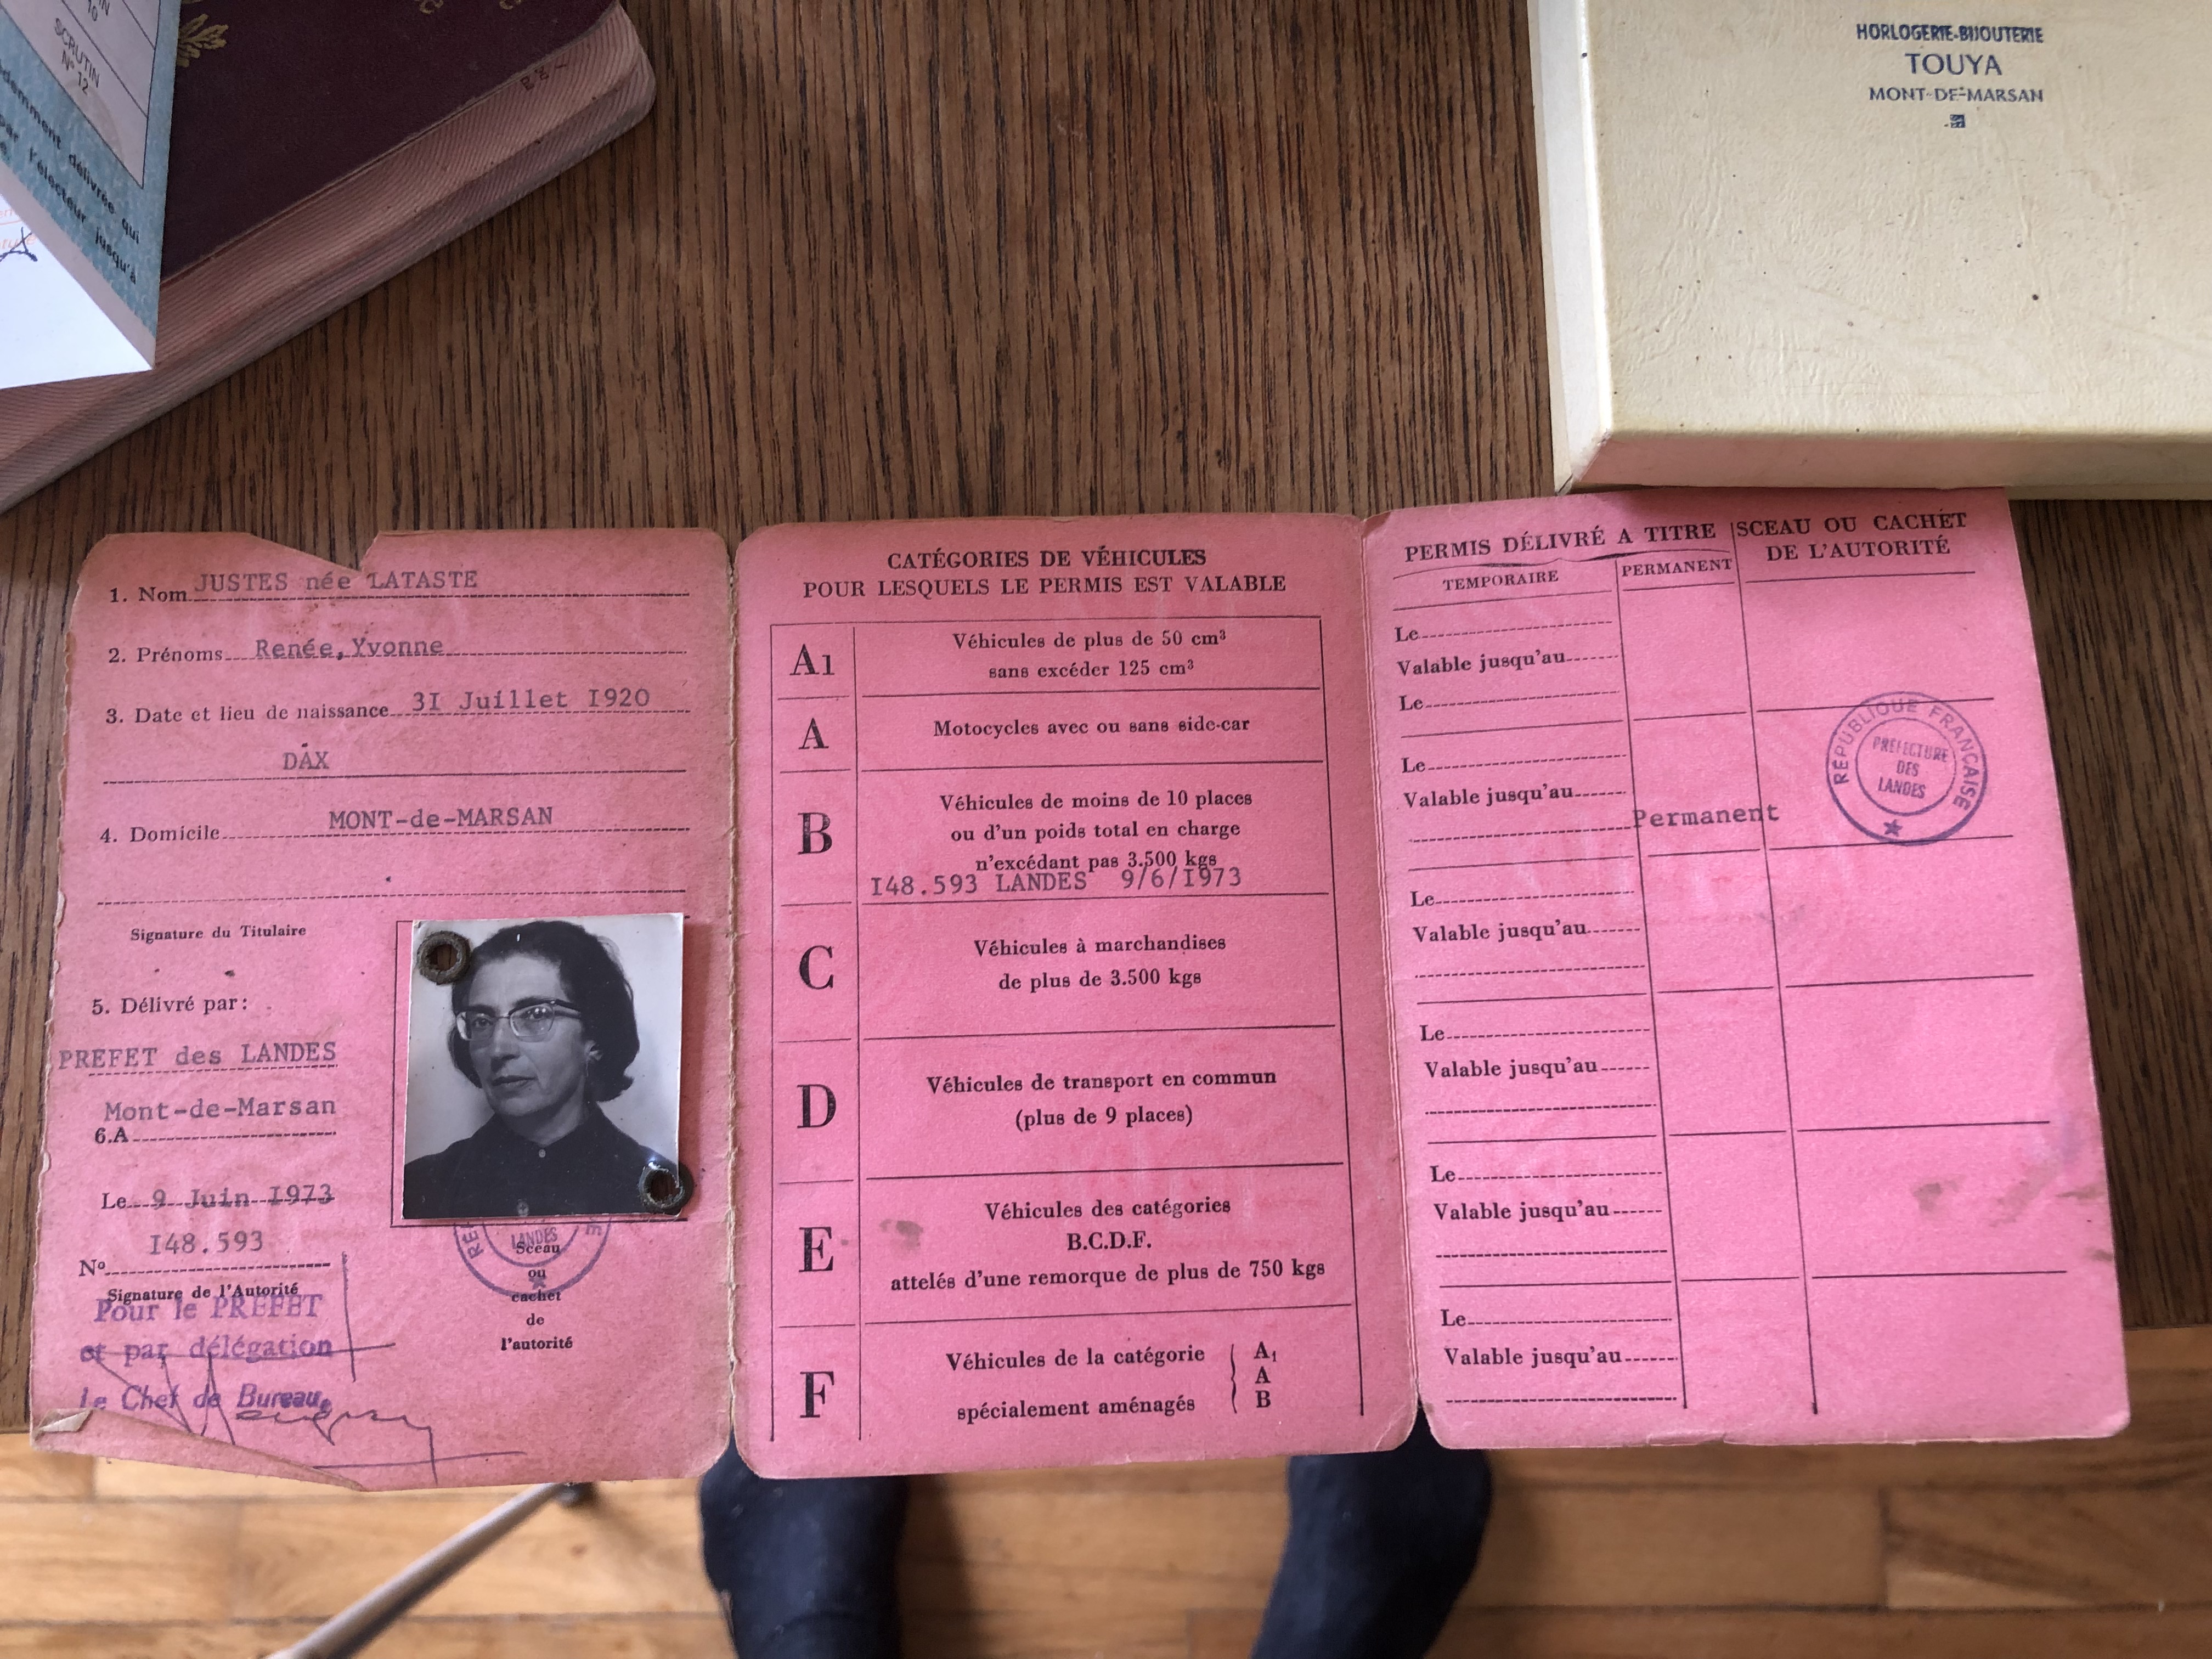 IN
10
SCRUTIN
N° 12
demment délivrée qui
par l'électeur jusqu'à
HORLOGERIE-BIJOUTERIE
TOUYA
MONT-DE-MARSAN
1. Nom JUSTES née LATASTE
2. Prénoms Renée, Yvonne
3. Date et lieu de naissance 3I Juillet I920
DAX
4. Domicile MONT-de-MARSAN
Signature du Titulaire
5. Délivré par :
PREFET des LANDES
Mont-de-Marsan
6.A
Le 9 Juin I973
I48.593
N°
Signature de l'Autorité
Pour le PREFET
et par délégation
le Chef de Bureau,
LANDES
Sceau
ou
cachet
de
l'autorité
CATÉGORIES DE VÉHICULES
POUR LESQUELS LE PERMIS EST VALABLE
A1
Véhicules de plus de 50 cm³
sans excéder 125 cm³
A
Motocycles avec ou sans side-car
B
Véhicules de moins de 10 places
ou d'un poids total en charge
n'excédant pas 3.500 kgs
I48.593 LANDES 9/6/I973
C
Véhicules à marchandises
de plus de 3.500 kgs
D
Véhicules de transport en commun
(plus de 9 places)
E
Véhicules des catégories
B.C.D.F.
attelés d'une remorque de plus de 750 kgs
F
Véhicules de la catégorie
spécialement aménagés
A1
A
B
PERMIS DÉLIVRÉ A TITRE
TEMPORAIRE
PERMANENT
SCEAU OU CACHET
DE L'AUTORITÉ
Le
Valable jusqu'au
Le
Le
Valable jusqu'au
Permanent
RÉPUBLIQUE FRANÇAISE
PRÉFECTURE
DES
LANDES
Le
Valable jusqu'au
Le
Valable jusqu'au
Le
Valable jusqu'au
Le
Valable jusqu'au